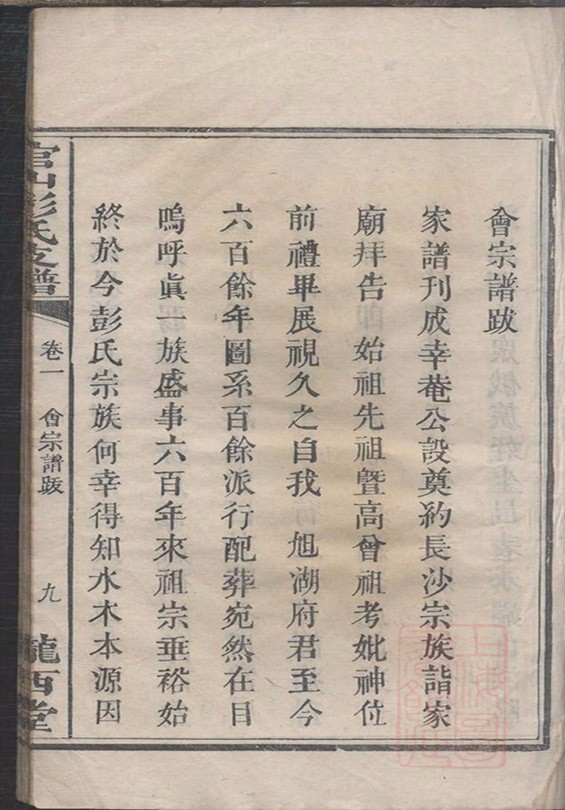 會宗譜跋
家譜刊成幸菴公設奠約長沙宗族詣家
廟拜告卽始祖先祖暨高曾祖考妣神位
前禮畢展視久之自我旭湖府君至今
六百餘年圖系百餘派行配葬宛然在目
嗚呼眞一族盛事六百年來祖宗垂裕始
終於今彭氏宗族何幸得知水木本源因
官山彭氏支譜
卷一
會宗譜跋
九
隴西堂